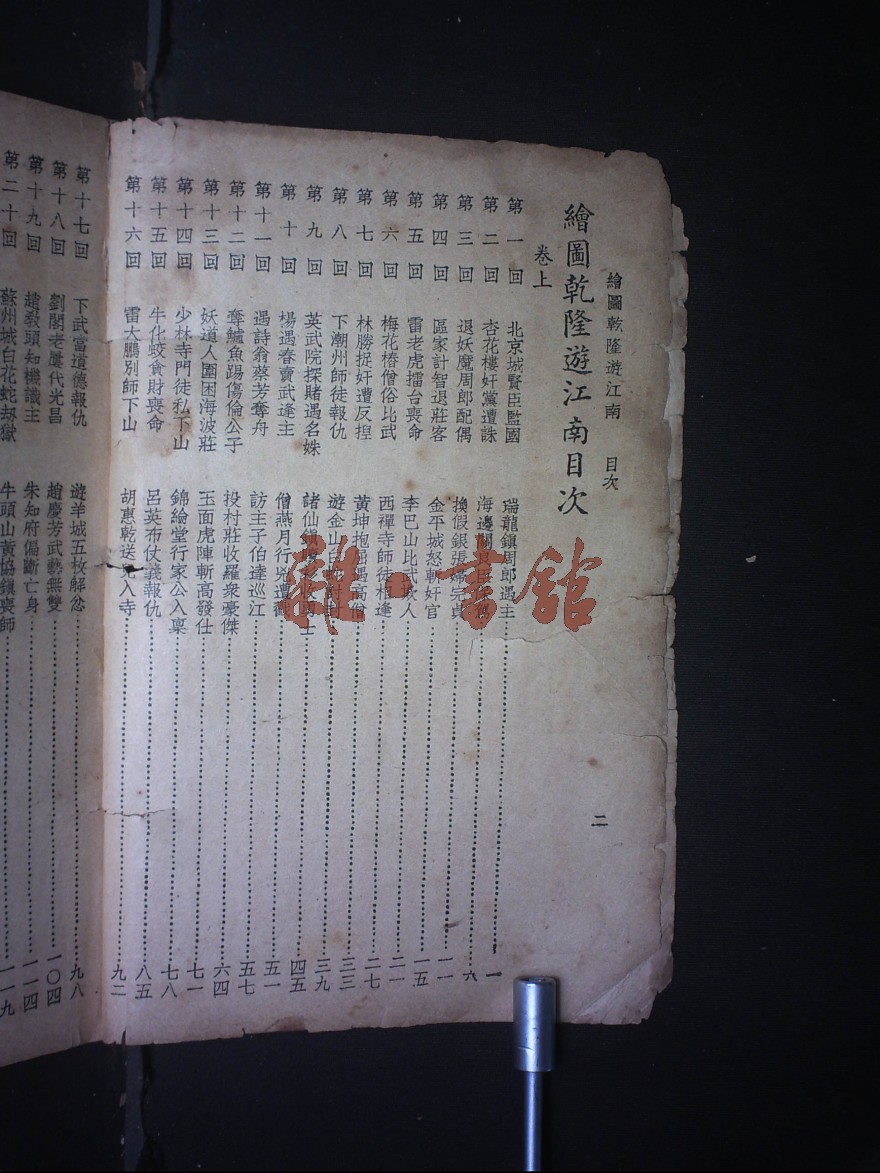 繪圖乾隆遊江南 目次
二
繪圖乾隆遊江南目次
卷上
第一回 北京城賢臣監國 瑞龍鎮周郎遇主 一
第二回 杏花樓奸黨遭誅 海邊關良臣保駕 六
第三回 退妖魔周郎配偶 換假銀張婦完貞 一一
第四回 區家計智退莊客 金平城怒斬奸官 一五
第五回 雷老虎擂台喪命 李巴山比武欺人 二一
第六回 梅花樁僧俗比武 西禪寺師徒相逢 二七
第七回 林勝捉奸遭反揑 黃坤抱屈遇高僧 三三
第八回 下潮州師徒報仇 遊金山白蛇討封 三九
第九回 英武院探賭遇名姝 諸仙鎮賣武收勇士 四五
第十回 楊遇春賣武逢主 僧燕月行兇遭戮 五一
第十一回 遇詩翁蔡芳奪舟 訪主子伯達巡江 五七
第十二回 奪鱸魚踢傷倫公子 投村莊收羅衆豪傑 六四
第十三回 妖道人圍困海波莊 玉面虎陳斬高發仕 七一
第十四回 少林寺門徒私下山 錦綸堂行家公入稟 七八
第十五回 牛化蛟貪財喪命 呂英布仗義報仇 八五
第十六回 雷大鵬別師下山 胡惠乾送兇入寺 九二
第十七回 下武當道德報仇 遊羊城五枚解忿 九八
第十八回 劉閣老屢代光昌 趙慶芳武藝無雙 一〇四
第十九回 趙敎頭知機識主 朱知府偏斷亡身 一一四
第二十回 蘇州城白花蛇刼獄 牛頭山黃協鎮喪師 一一九
雜·書館